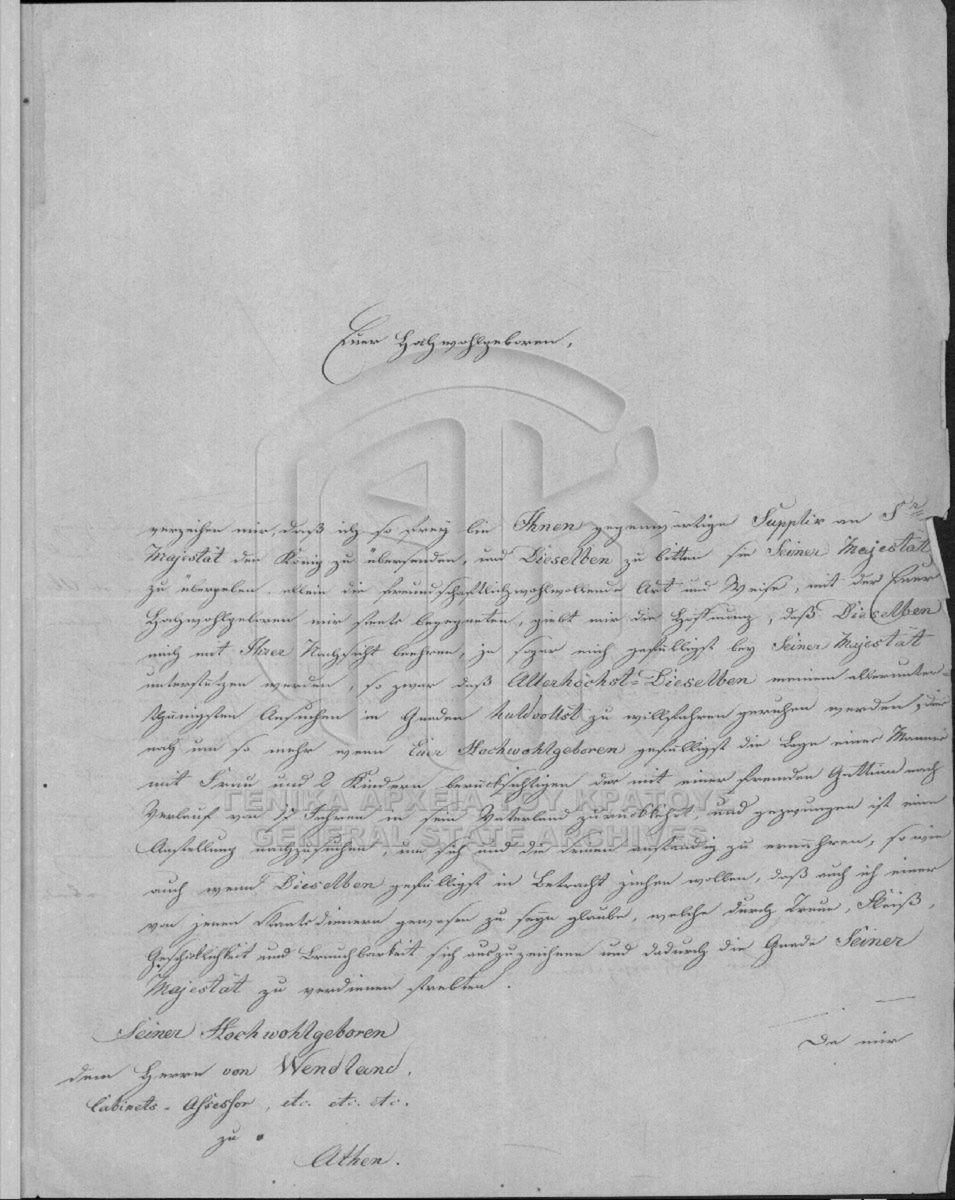 Euer Hochwohlgeboren,
verzeihen mir, daß ich so frey bin Ihnen gegenwärtige Supplik an Sr
Majestät den König zu übersenden, und Dieselben zu bitten sie Seiner Majestät
zu übergeben. allein die freundschaftlich wohlwollende Art und Weise, mit der Euer
Hochwohlgeboren mir stets begegneten, giebt mir die Hoffnung, daß Dieselben
mich mit Ihrer Nachsicht beehren, ja sogar mich gefälligst bey Seiner Majestät
unterstützen werden, so zwar daß Allerhöchst-Dieselben meinem allerunter-
thänigsten Ansuchen in Gnaden huldvollst zu willfahren geruhen werden, dieß
noch um so mehr wenn Euer Hochwohlgeboren gefälligst die Lage eines Mannes
mit Frau und 2 Kindern berücksichtigen der mit einer fremden Gattinn nach
Verlauf von Jahren in sein Vaterland zurückkehrt, und gezwungen ist eine
Anstellung nachzusuchen, um sich und die seinen anständig zu ernähren, so wie
auch wenn Dieselben gefälligst in Betracht ziehen wollen, daß auch ich einer
von jenen Staatsdienern gewesen zu seyn glaube, welche durch Treue, Fleiß,
Geschicklichkeit und Brauchbarkeit sich auszuzeichnen und dadurch die Gnade Seiner
Majestät zu verdienen strebten.
Da mir
Seiner Hochwohlgeboren
dem Herrn von Wendland.
Cabinets-Assessor, etc. etc. etc.
zu
Athen.
ΓΕΝΙΚΑ ΑΡΧΕΙΑ ΤΟΥ ΚΡΑΤΟΥΣ
GENERAL STATE ARCHIVES